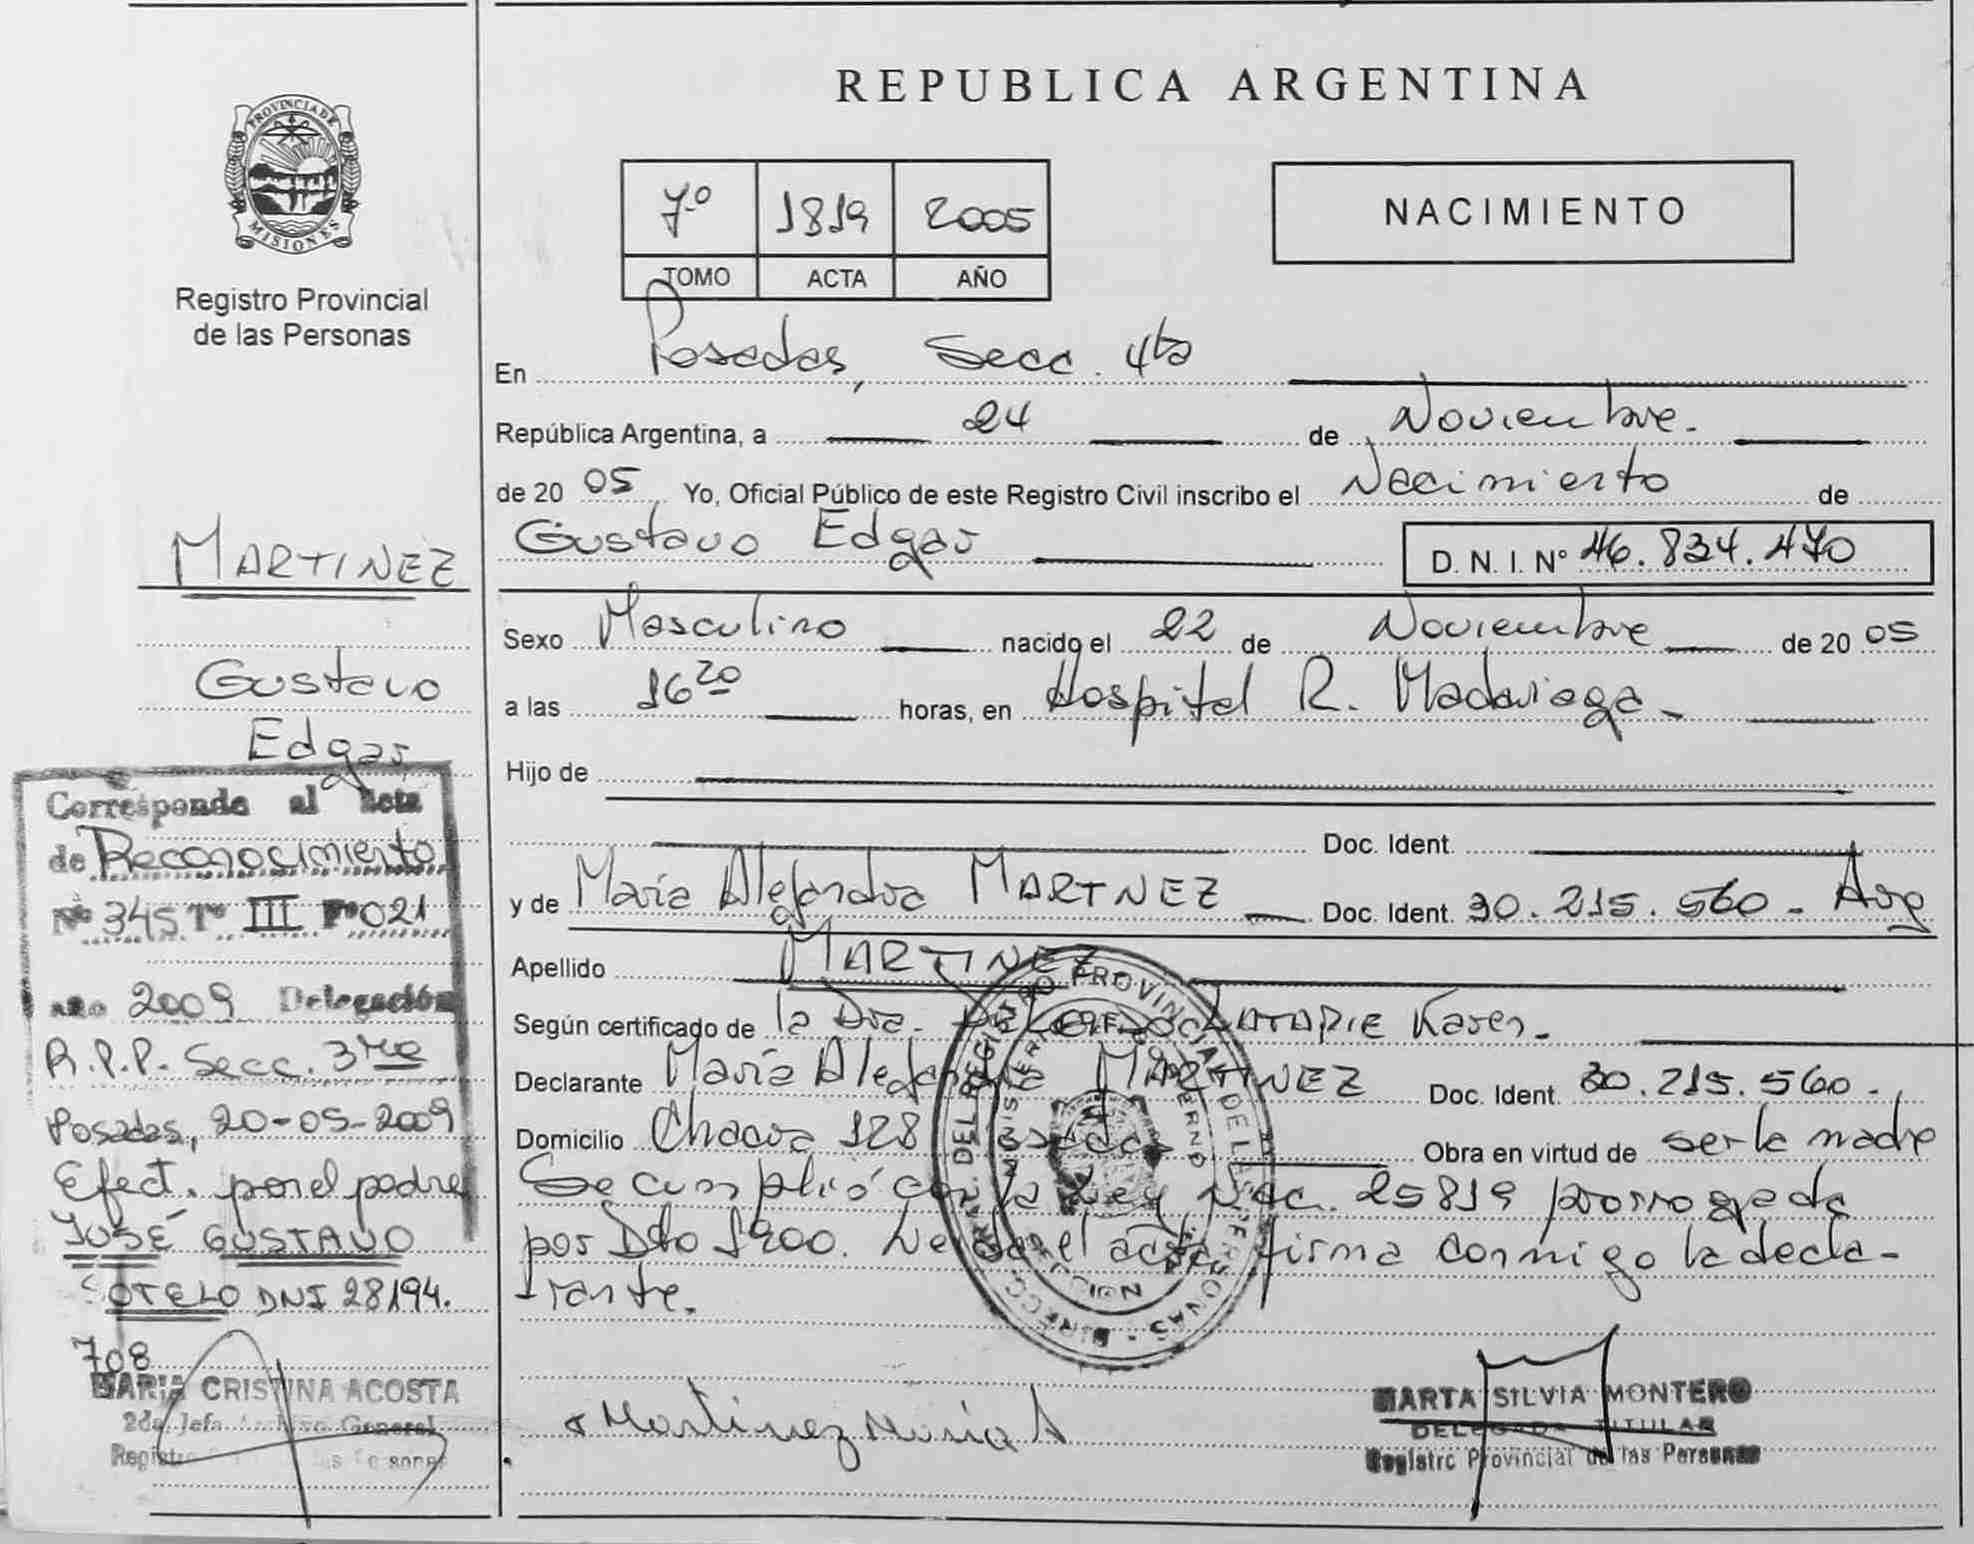 PROVINCIA DE
MISIONES
Registro Provincial
de las Personas
MARTINEZ
Gustavo
Edgar
Corresponde al Acta
de Reconocimiento
Nº 345 Tº III Fº 021
año 2009 Delegación
R.P.P. Secc. 3ra
Posadas, 20-05-2009
Efect. por el padre
JOSÉ GUSTAVO
SOTELO DNI 28194.
708
MARIA CRISTINA ACOSTA
2da. Jefa Archivo General
Registro las Personas
REPUBLICA ARGENTINA
7º 1819 2005
TOMO ACTA AÑO
NACIMIENTO
En Posadas, Secc. 4ta
República Argentina, a 24 de Noviembre.
de 20 05 Yo, Oficial Público de este Registro Civil inscribo el Nacimiento de
Gustavo Edgar D. N. I. Nº 46.834.470
Sexo Masculino nacido el 22 de Noviembre de 20 05
a las 16 20 horas, en Hospital R. Madariaga -
Hijo de
Doc. Ident.
y de María Alejandra MARTNEZ Doc. Ident. 30.215.560 - Arg
Apellido MARTINEZ
Según certificado de la Dra. LATAPIE Karen -
Declarante María Alejandra MARTINEZ Doc. Ident. 30.215.560 -
Domicilio Chacra 128 Posadas Obra en virtud de ser la madre
Se cumplió con la Ley Nac. 25819 prorrogada
por Dto 1900. Leída el acta, firma conmigo la decla-
rante.
DIRECC. GRAL. DEL REGISTRO PROVINCIAL DE LAS PERSONAS
MINISTERIO DE GOBIERNO
Martinez Maria A
MARTA SILVIA MONTERO
DELEGADA TITULAR
Registro Provincial de las Personas